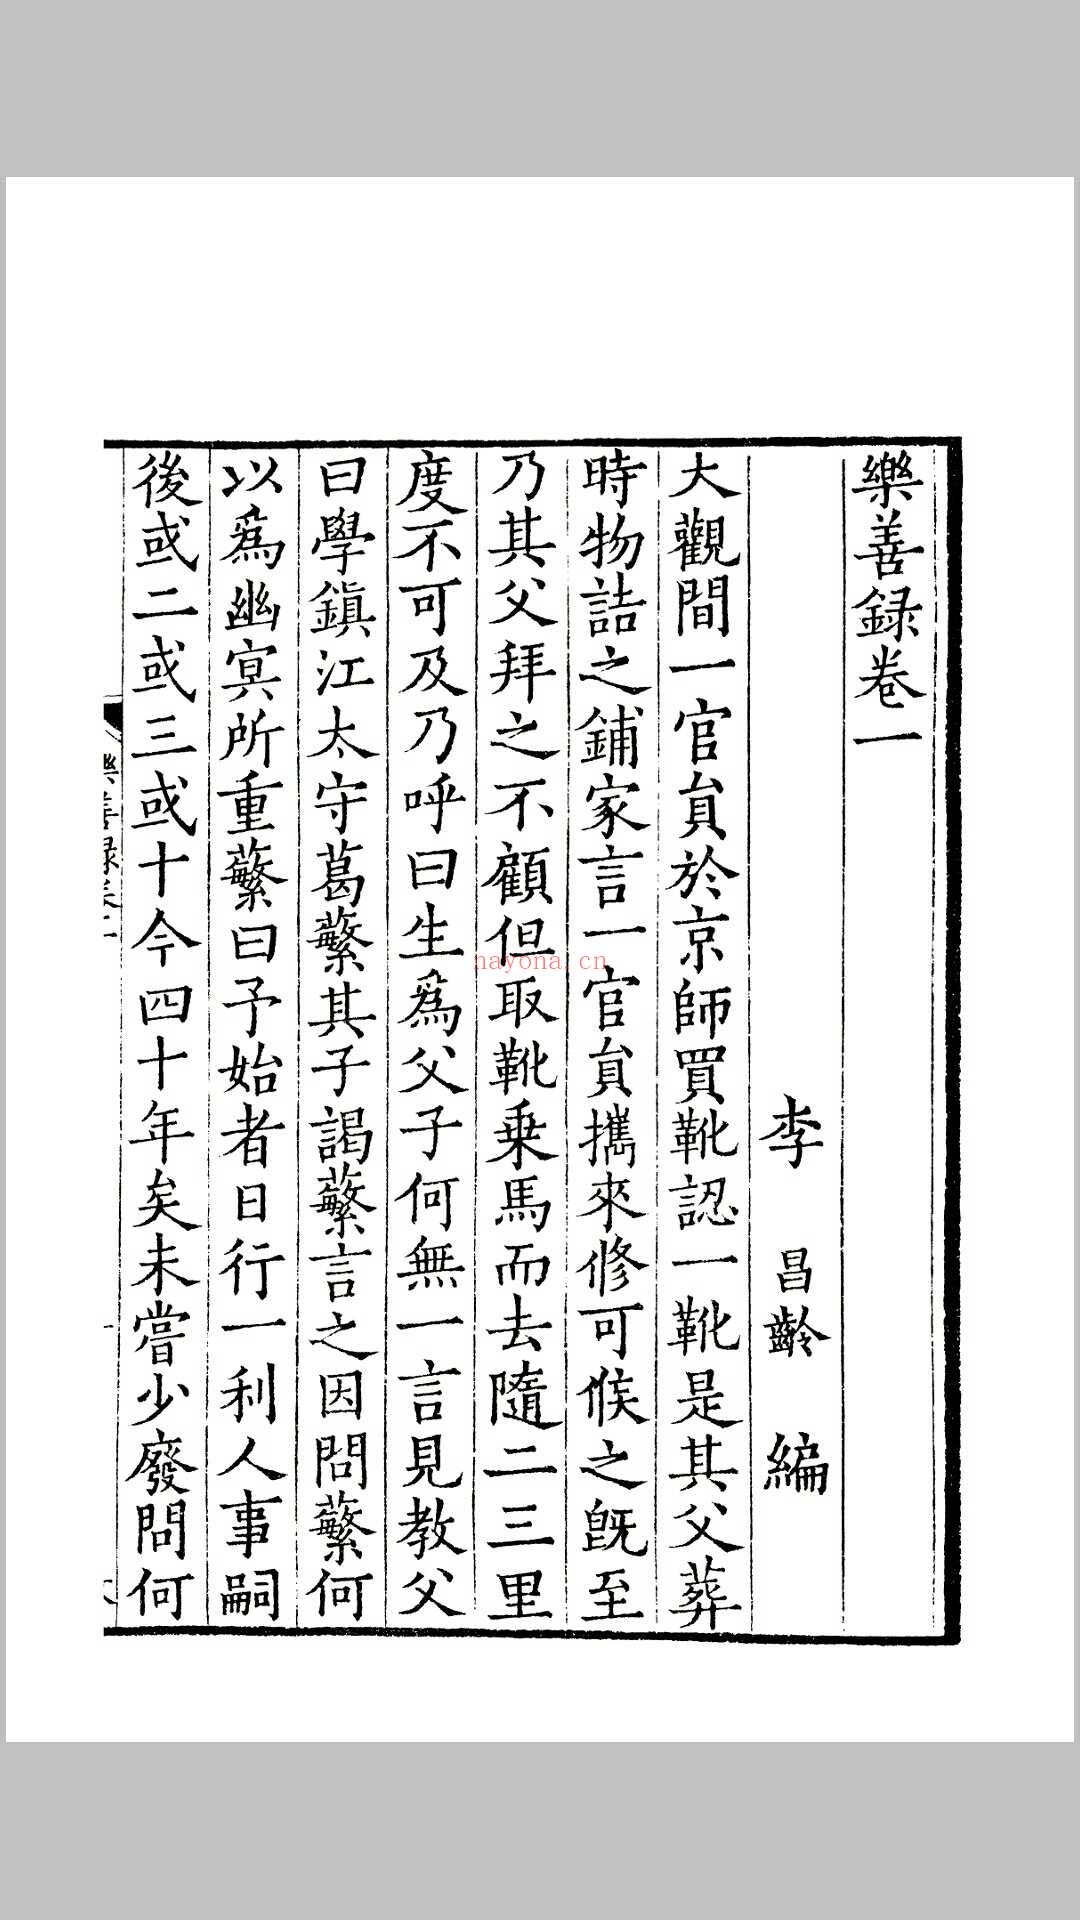 樂善録卷一
李昌齡編
大觀間一官貟於京師買靴認一靴是其父葬
時物詰之鋪家言一官貟攜來修可候之旣至
乃其父拜之不顧但取靴乗馬而去隨二三里
度不可及乃呼曰生爲父子何無一言見教父
曰學鎭江太守葛蘩其子謁蘩言之因問蘩何
以爲幽冥所重蘩曰予始者日行一利人事嗣
後或二或三或十今四十年矣未嘗少廢問何
樂善録卷一
nayona.cn